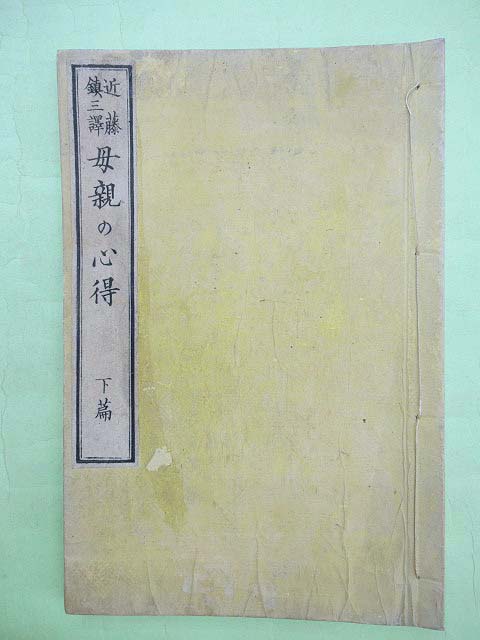 近藤
鎮三譯
母親の心得
下篇